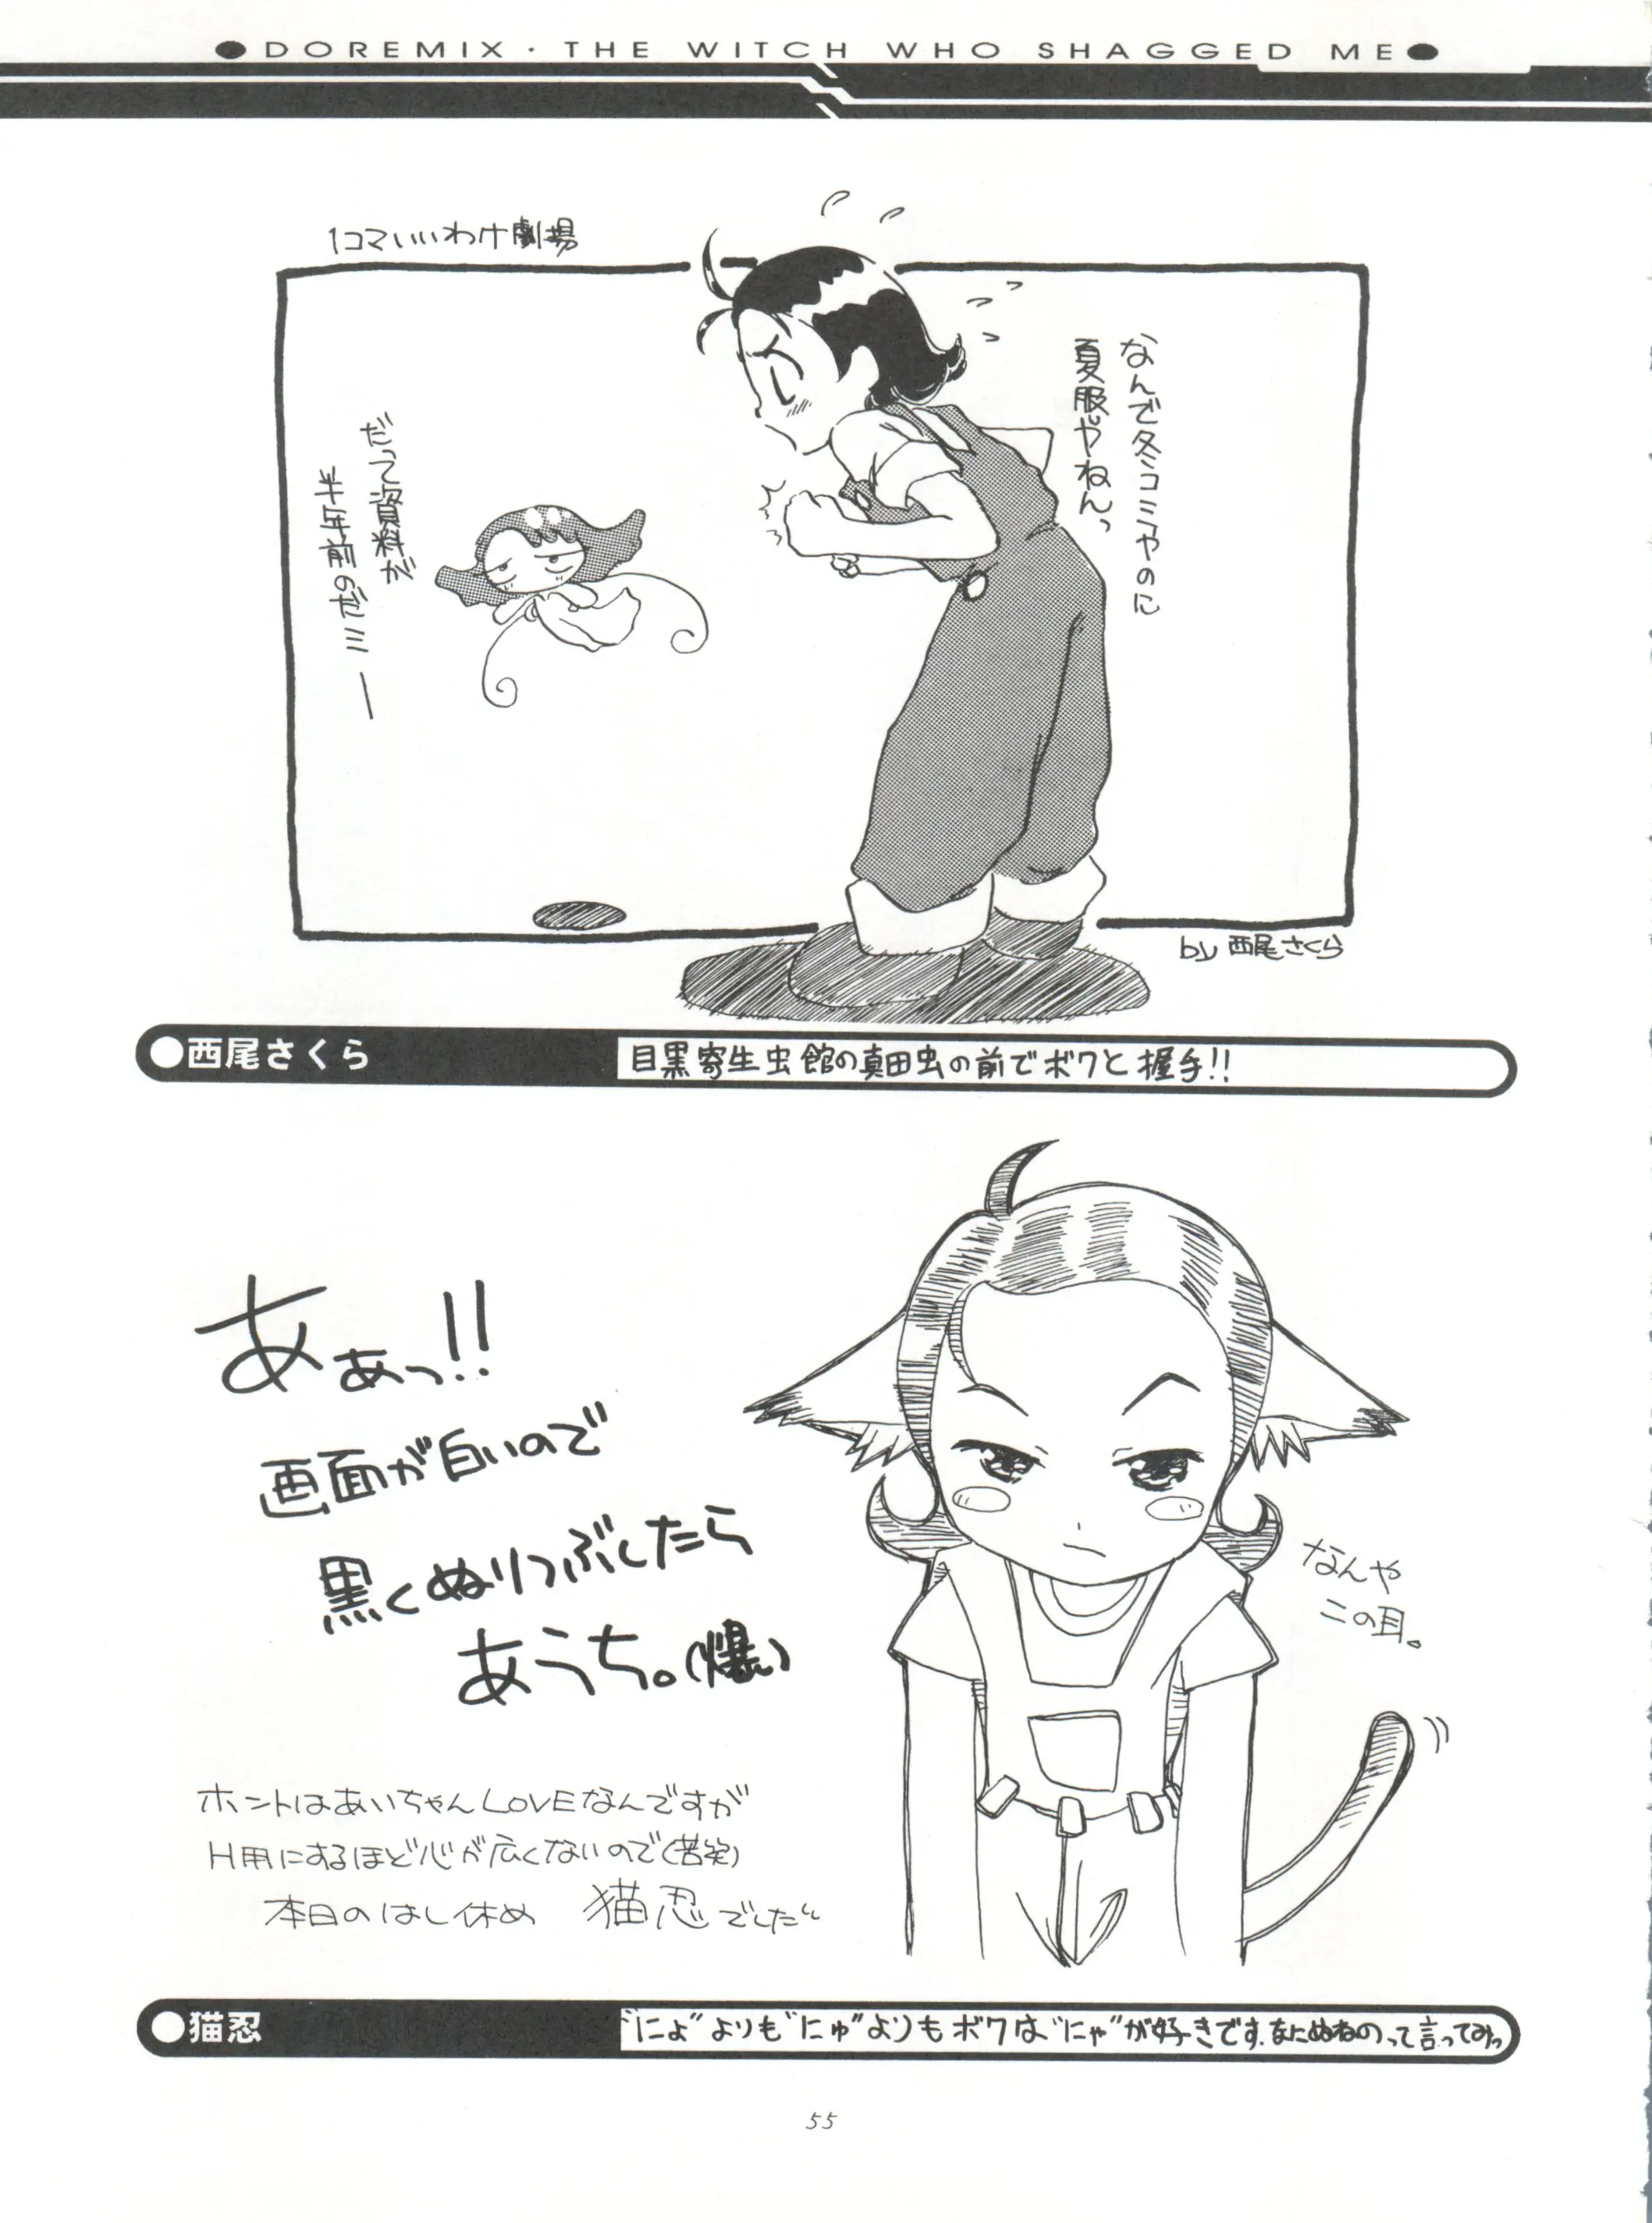 ●DOREMIX・THE WITCH WHO SHAGGED ME●
1コマいいわけ劇場
なんで冬コミやのに
夏服やねんっ
だって資料が
半年前のだミー
by 西尾さくら
●西尾さくら
目黒寄生虫館の真田虫の前でボクと握手!!
あぁっ!!
画面が白いので
黒くぬりつぶしたら
あうち。(爆)
なんや
この目。
ホントはあいちゃんLOVEなんですが
H用にするほど心が広くないので(苦笑)
本日のはし休め 猫忍でした
●猫忍
"にょ"よりも"にゅ"よりもボクは"にゃ"が好きです.なにぬねのって言ってみっ
55